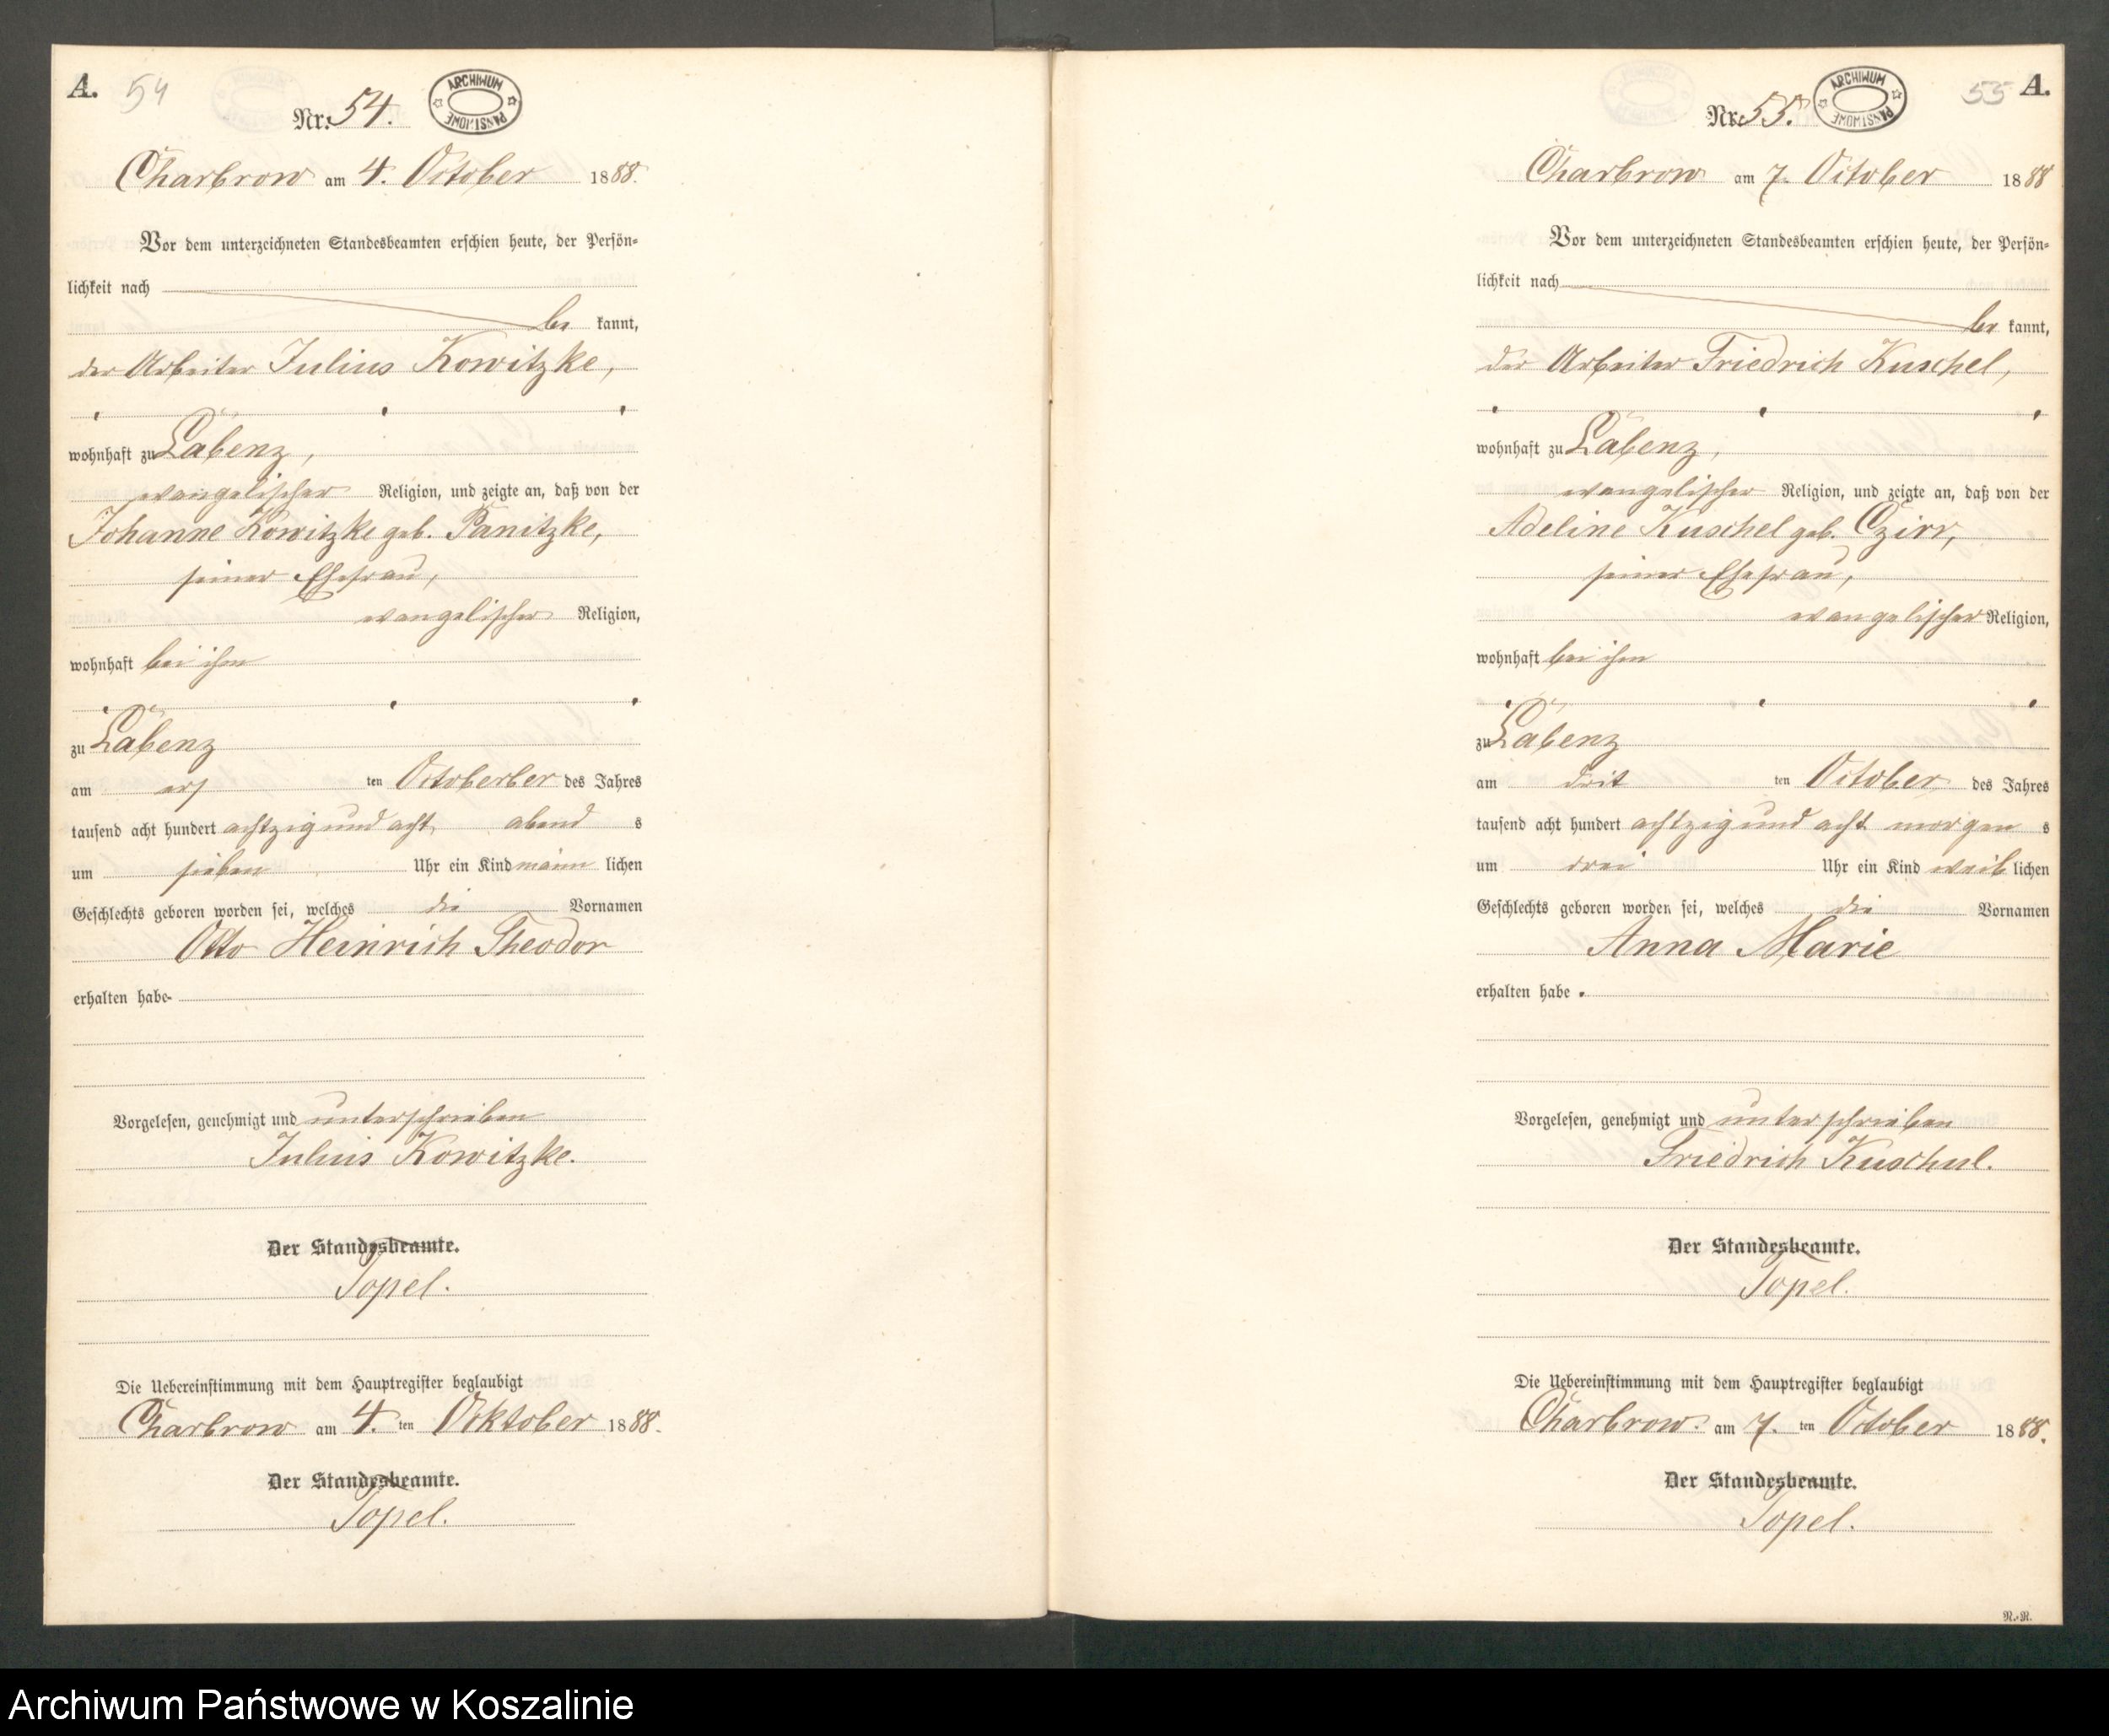 A. 54
Nr. 54.
ARCHIWUM PAŃSTWOWE
Charbrow am 4. October 1888.
Vor dem unterzeichneten Standesbeamten erschien heute, der Persön=
lichkeit nach
be kannt,
der Arbeiter Julius Kowitzke,
wohnhaft zu Läbenz,
evangelischer Religion, und zeigte an, daß von der
Johanne Kowitzke geb. Panitzke,
seiner Ehefrau,
evangelischer Religion,
wohnhaft bei ihm
zu Läbenz
am ers ten Octoberber des Jahres
tausend acht hundert achtzig und acht abend s
um sieben Uhr ein Kind männ lichen
Geschlechts geboren worden sei, welches die Vornamen
Otto Heinrich Theodor
erhalten habe.
Vorgelesen, genehmigt und unterschrieben
Julius Kowitzke.
Der Standesbeamte.
Topel.
Die Uebereinstimmung mit dem Hauptregister beglaubigt
Charbrow am 4. ten Oktober 1888.
Der Standesbeamte.
Topel.
55 A.
Nr. 55.
ARCHIWUM PAŃSTWOWE
Charbrow am 7. October 1888
Vor dem unterzeichneten Standesbeamten erschien heute, der Persön=
lichkeit nach
be kannt,
der Arbeiter Friedrich Kuschel,
wohnhaft zu Läbenz,
evangelischer Religion, und zeigte an, daß von der
Adeline Kuschel geb. Czirr,
seiner Ehefrau,
evangelischer Religion,
wohnhaft bei ihm
zu Läbenz
am drit ten October des Jahres
tausend acht hundert achtzig und acht morgen s
um drei Uhr ein Kind weib lichen
Geschlechts geboren worden sei, welches die Vornamen
Anna Marie
erhalten habe.
Vorgelesen, genehmigt und unterschrieben
Friedrich Kuschel.
Der Standesbeamte.
Topel.
Die Uebereinstimmung mit dem Hauptregister beglaubigt
Charbrow am 7. ten October 1888.
Der Standesbeamte.
Topel.
N.-N.
Archiwum Państwowe w Koszalinie